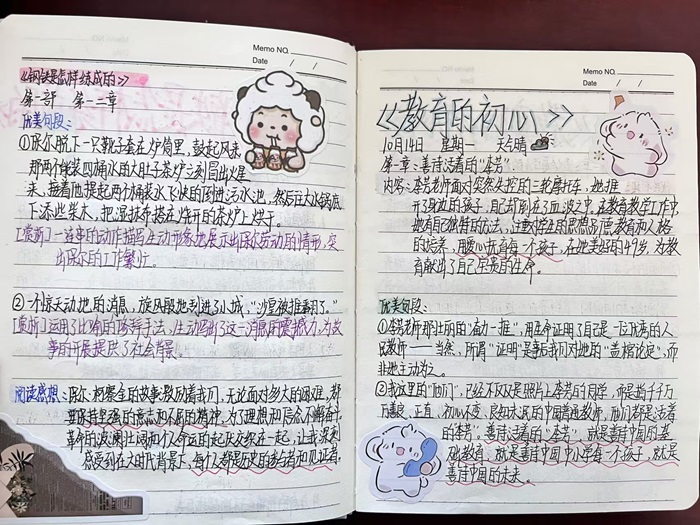 Memo NO.
Date / /
《钢铁是怎样炼成的》
第一部 第一二章
优美句段：
①保尔脱下一只靴子套在炉筒里，鼓起风来
那两个能装四桶水的大肚子茶炉立刻冒出火星
来，接着他提起两个桶装水飞快的倒进污水池，然后往大水锅底
下添些柴火，把湿抹布搭在烧开的茶炉上烘干。
[赏析]一连串的动作描写生动形象地展示出保尔劳动的情形，突
出保尔的工作繁忙。
②一个惊天动地的消息，旋风般地刮进了小城，“沙皇被推翻了。”
[赏析]运用了比喻的修辞手法，生动写出了这一消息的震撼力，为故
事的开展提供了社会背景。
阅读感想：保尔·柯察金的故事激励着我们，无论面对多大的困难，都
要保持坚强的意志和不屈的精神，为了理想和信念不懈奋斗，
革命的波澜壮阔和个人命运的起伏交织在一起，让我深刻
感受到在大时代背景下，每个人都是历史的参与者和见证者。
Memo NO.
Date / /
《教育的初心》
10月14日 星期一 天气晴
第一章：善待活着的“李芳”。
内容：李芳老师面对突然失控的三轮摩托车，她推
开身边的孩子，自己却倒在了血泊之中，在教育教学工作中，
她有自己独特的方法，注重学生的思想品德教育和人格
的培养，用爱心抚育每一个孩子，在她美丽的49岁，为教
育献出了自己尽贵的生命。
优美句段：
①李芳老师那壮丽的“奋力一推”，用生命证明了自己是一位优秀的人
民教师——当然，所谓“证明”是事后我们对她的“盖棺论定”，而
非她主动为之。
②我这里的“他们”，已经不仅仅是照片上李芳的同学，而是指千千万
万善良、正直、初心不变、良知未泯的中国普通教师，他们都是活着
的“李芳”，善待活着的“李芳”，就是善待中国的基
础教育，就是善待中国中小学每一个孩子，就是
善待中国的未来。